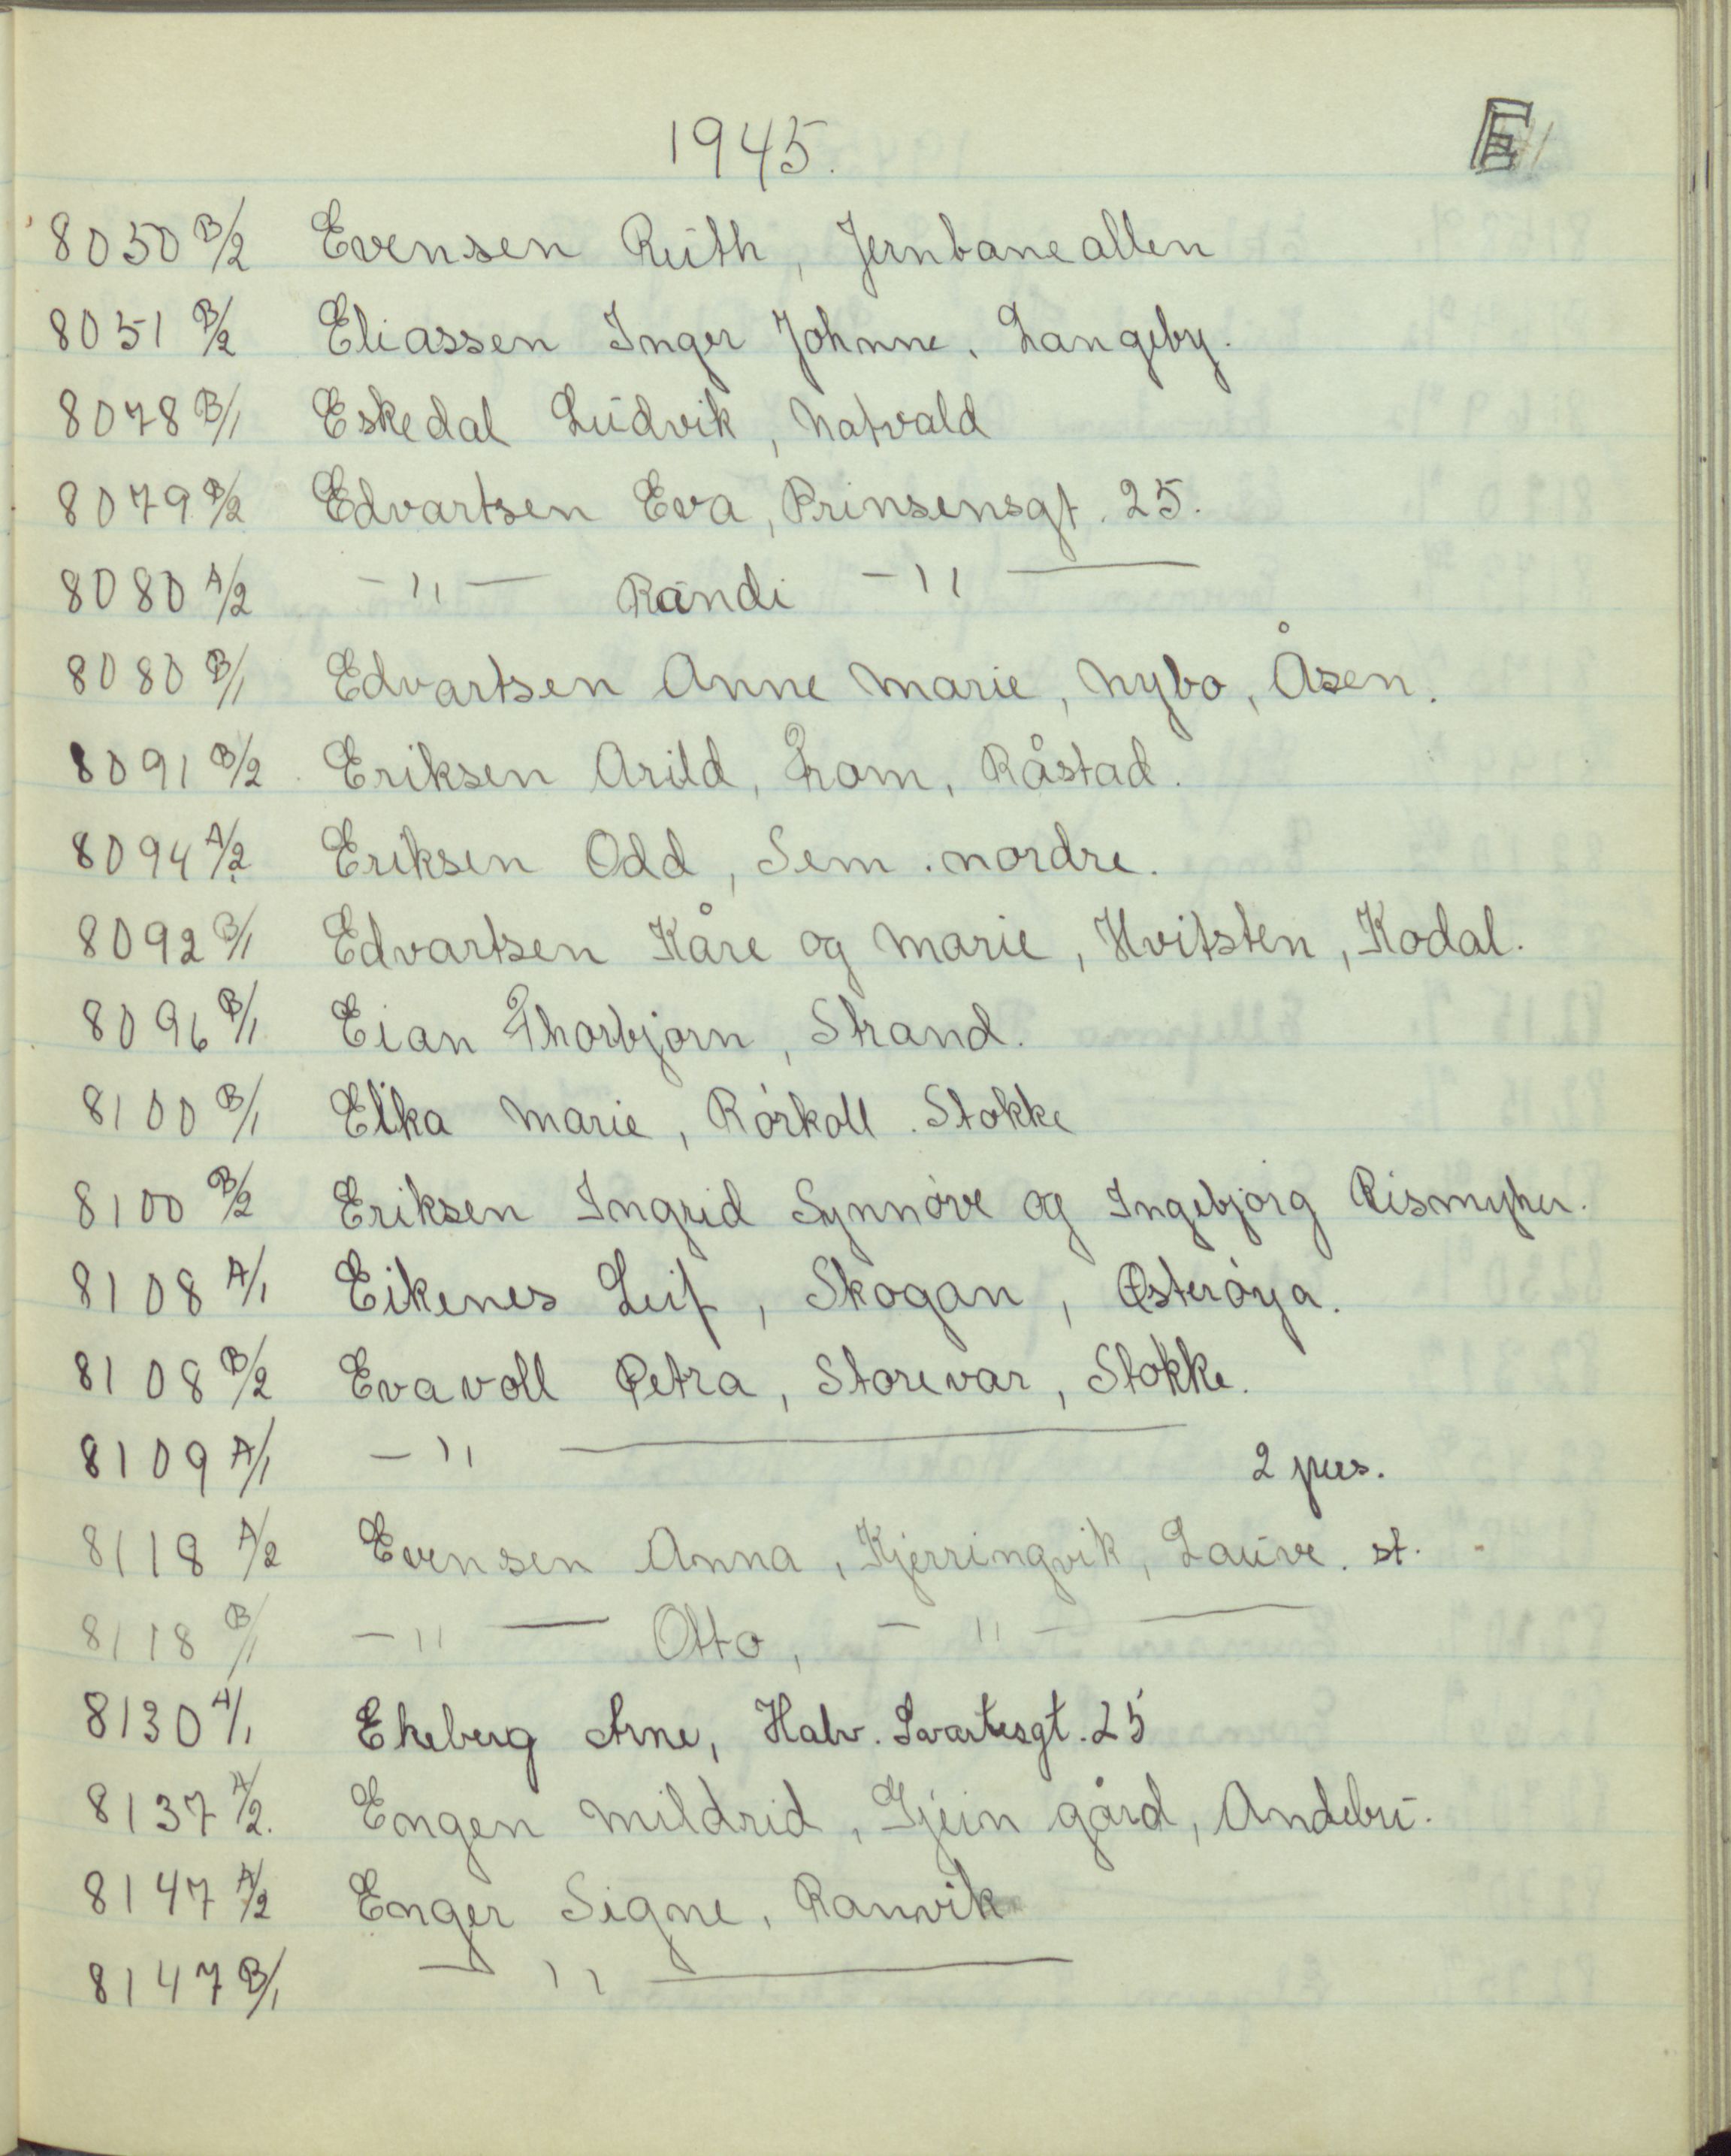 1945.
E
8050 B/2 Evensen Ruth, Jernbaneallen
8051 B/2 Eliassen Inger Johnne. Langeby.
8078 B/1 Eskedal Ludvik, Natvald
8079 B/2 Edvartsen Eva, Prinsensgt. 25.
8080 A/2 -"- Randi -"-
8080 B/1 Edvartsen Anne Marie, Nybo, Åsen.
8091 B/2 Eriksen Arild, Fram, Råstad.
8094 A/2 Eriksen Odd, Sem. nordre.
8092 B/1 Edvartsen Kåre og Marie, Hvitsten, Kodal.
8096 B/1 Eian Thorbjørn, Strand.
8100 B/1 Elka Marie, Rórkoll. Stokke
8100 B/2 Eriksen Ingrid Synnóve og Ingebjørg
8108 A/1 Eikenes Leif, Skogan, Østeróya.
8108 B/2 Evavoll Petra, Storevar, Stokke.
8109 A/1 -" 2 pers.
8118 A/2 Evensen Anna, Kjerringvik, Lauve. st.
8118 B/1 -"- Otto, -"-
8130 A/1 Ekeberg Arne, Halv. Svartesgt. 25
8137 A/2. Engen Mildrid, Gjein gård, Andebu.
8147 A/2 Enger Signe, Ranvik
8147 B/1 -"-